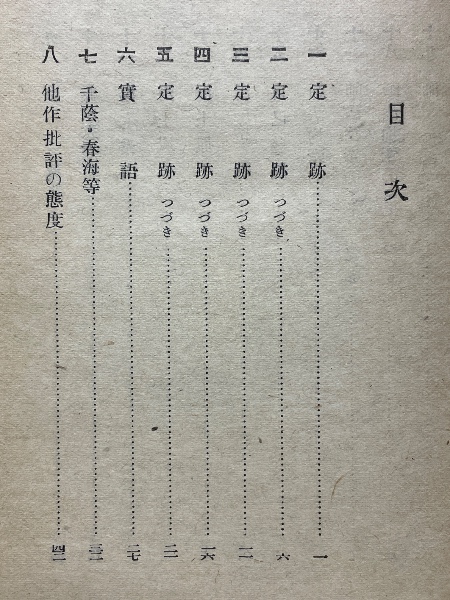 目次
一 定跡……一
二 定跡 つづき……六
三 定跡 つづき……一一
四 定跡 つづき……一六
五 定跡 つづき……二一
六 實語……二七
七 千蔭・春海等……三二
八 他作批評の態度……四二